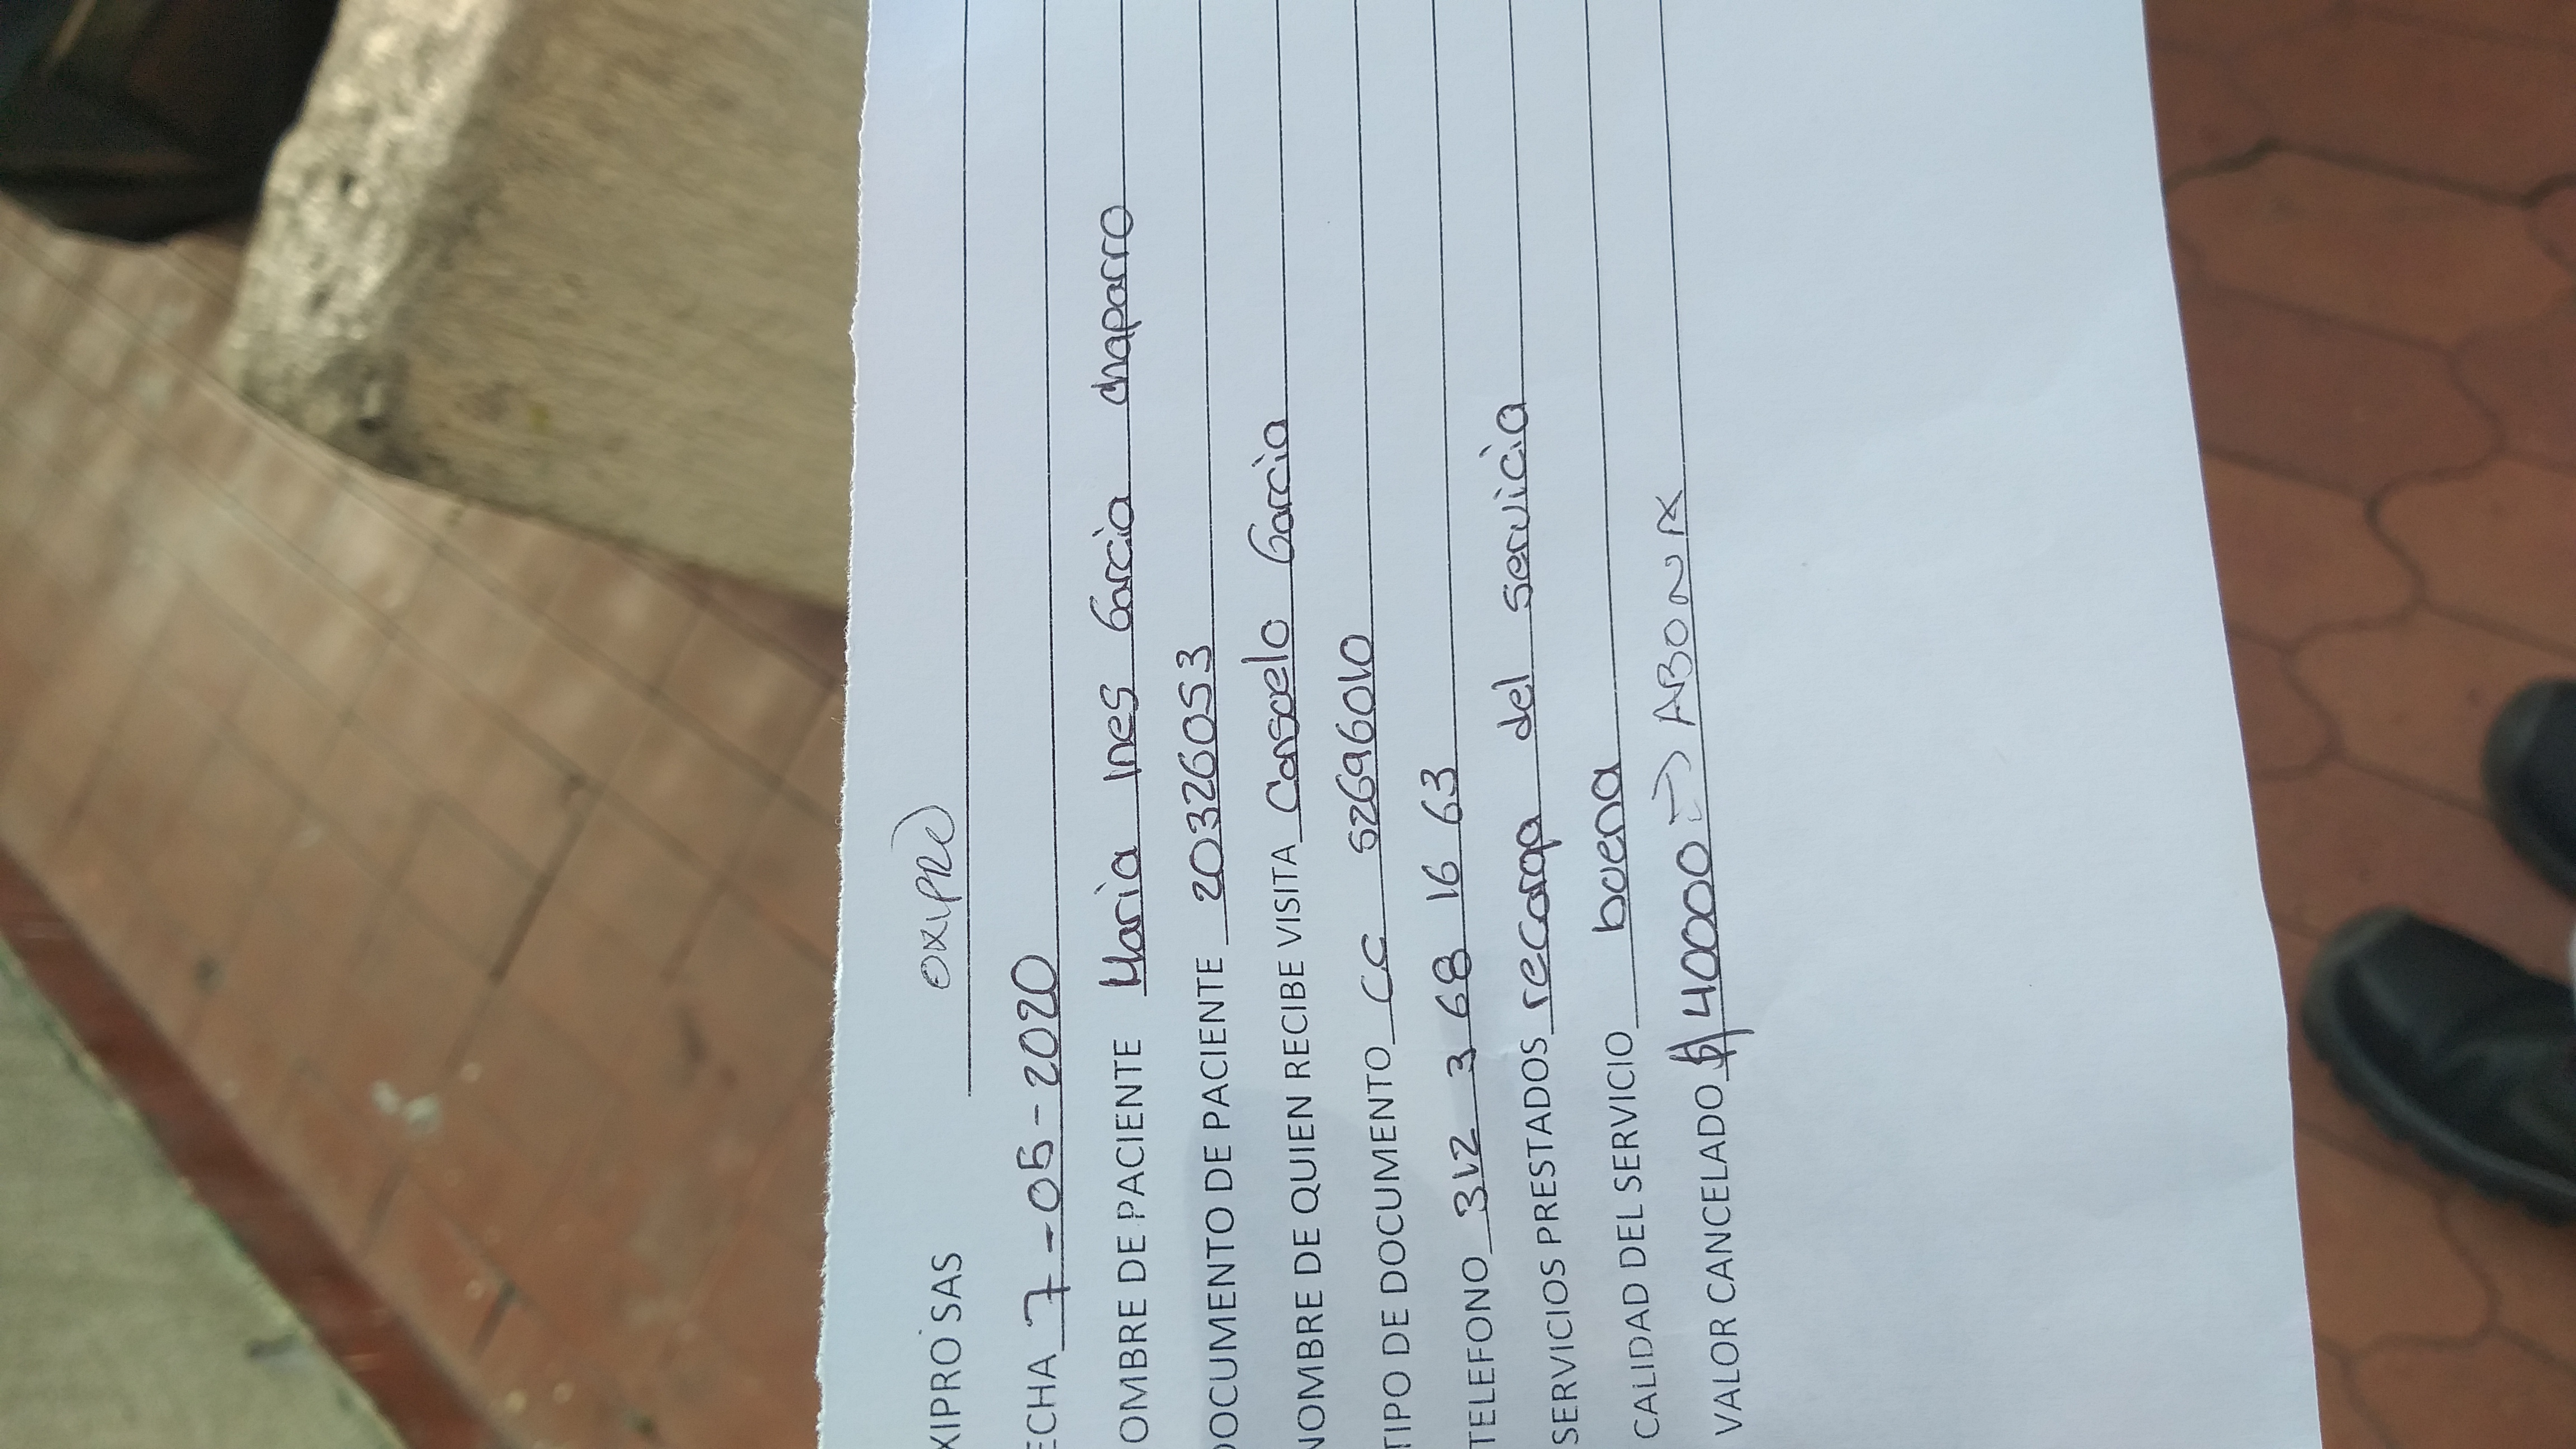 XIPRO SAS oxipro
ECHA 7-05-2020
OMBRE DE PACIENTE Maria Ines Garcia chaparro
DOCUMENTO DE PACIENTE 20326053
NOMBRE DE QUIEN RECIBE VISITA Consuelo Garcia
TIPO DE DOCUMENTO CC 52696010
TELEFONO 312 3 68 16 63
SERVICIOS PRESTADOS recarga del servicio
CALIDAD DEL SERVICIO buena
VALOR CANCELADO $40000 => ABONA